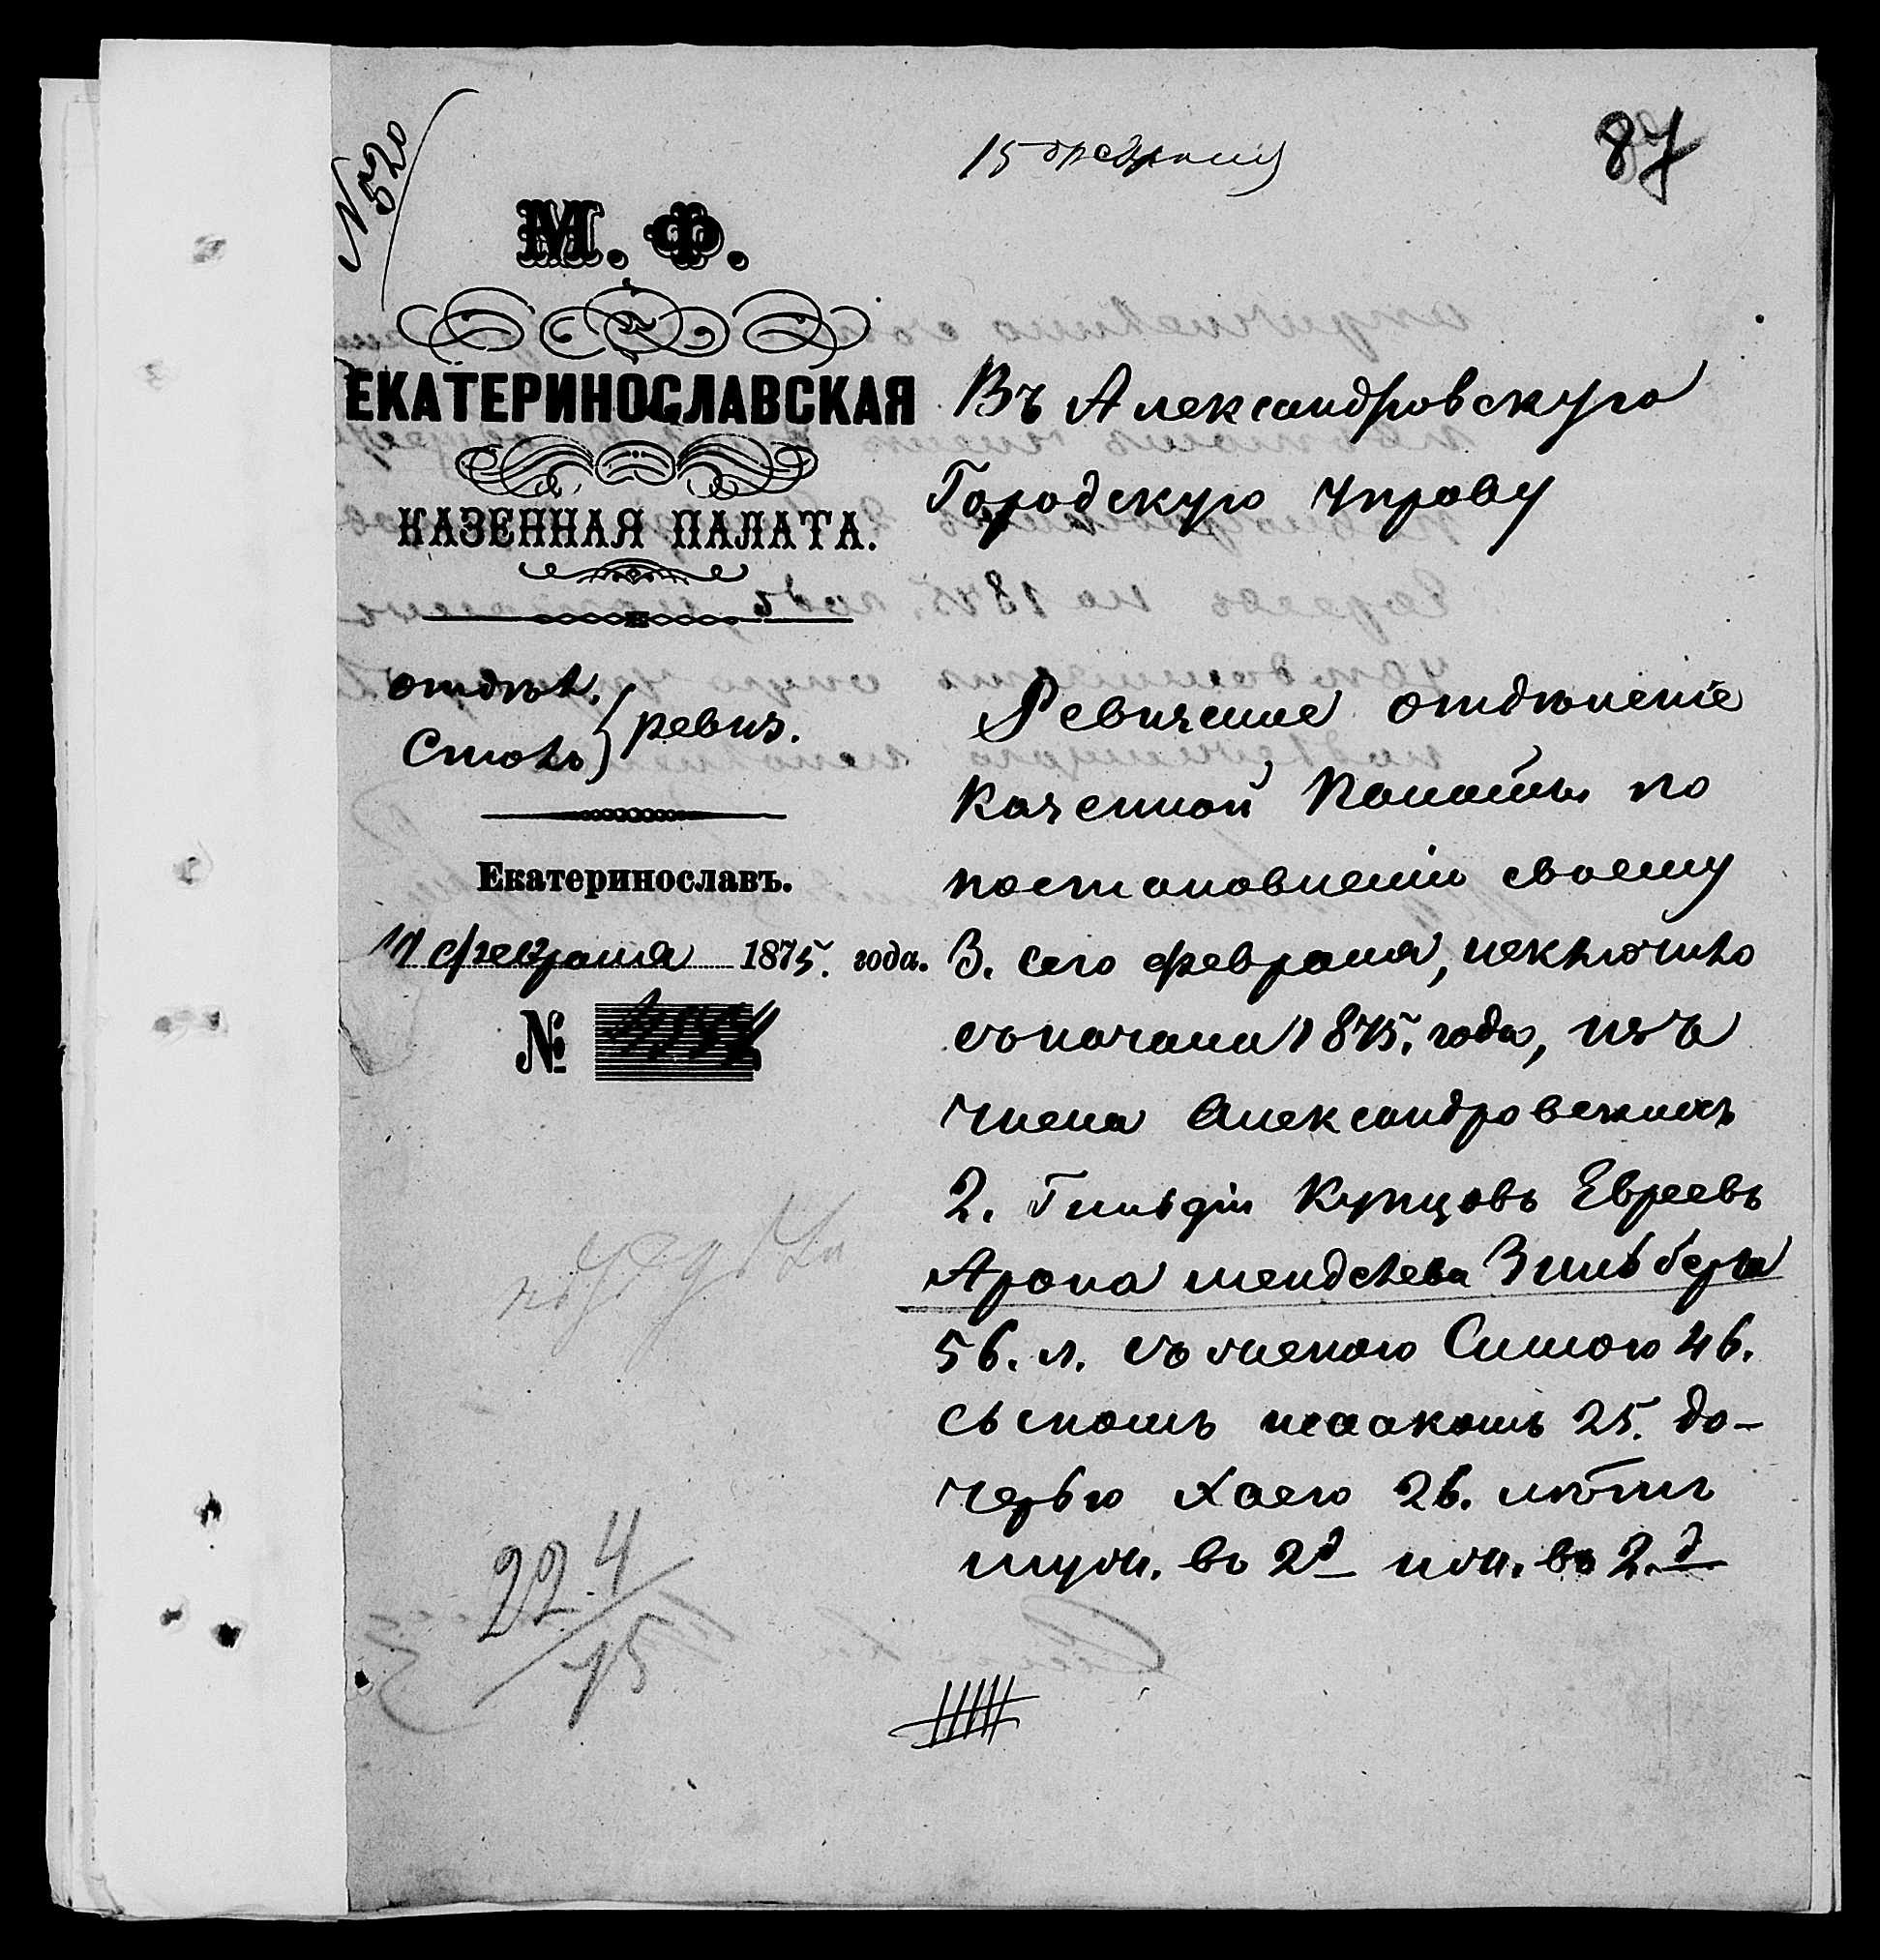 № 520
15 февраля
87
М. Ф.
ЕКАТЕРИНОСЛАВСКАЯ
КАЗЕННАЯ ПАЛАТА.
отдѣл.
Столъ } ревиз.
Екатеринославъ.
11 февраля 1875. года.
№
22 4/15
Въ Александровскую
Городскую Управу
Ревизское отдѣленіе
Казенной Палаты по
постановленію своему
3. сего февраля, исключило
съ начала 1875. года, изъ
числа Александровскихъ
2. Гильдіи Купцовъ Евреевъ
Арона Менделева Зильберга
56. л. съ женою Симою 46.
съ сыномъ Исаакомъ 25. до-
черью Хаею 26. лѣтъ
муж. въ 2д жен. въ 2.д